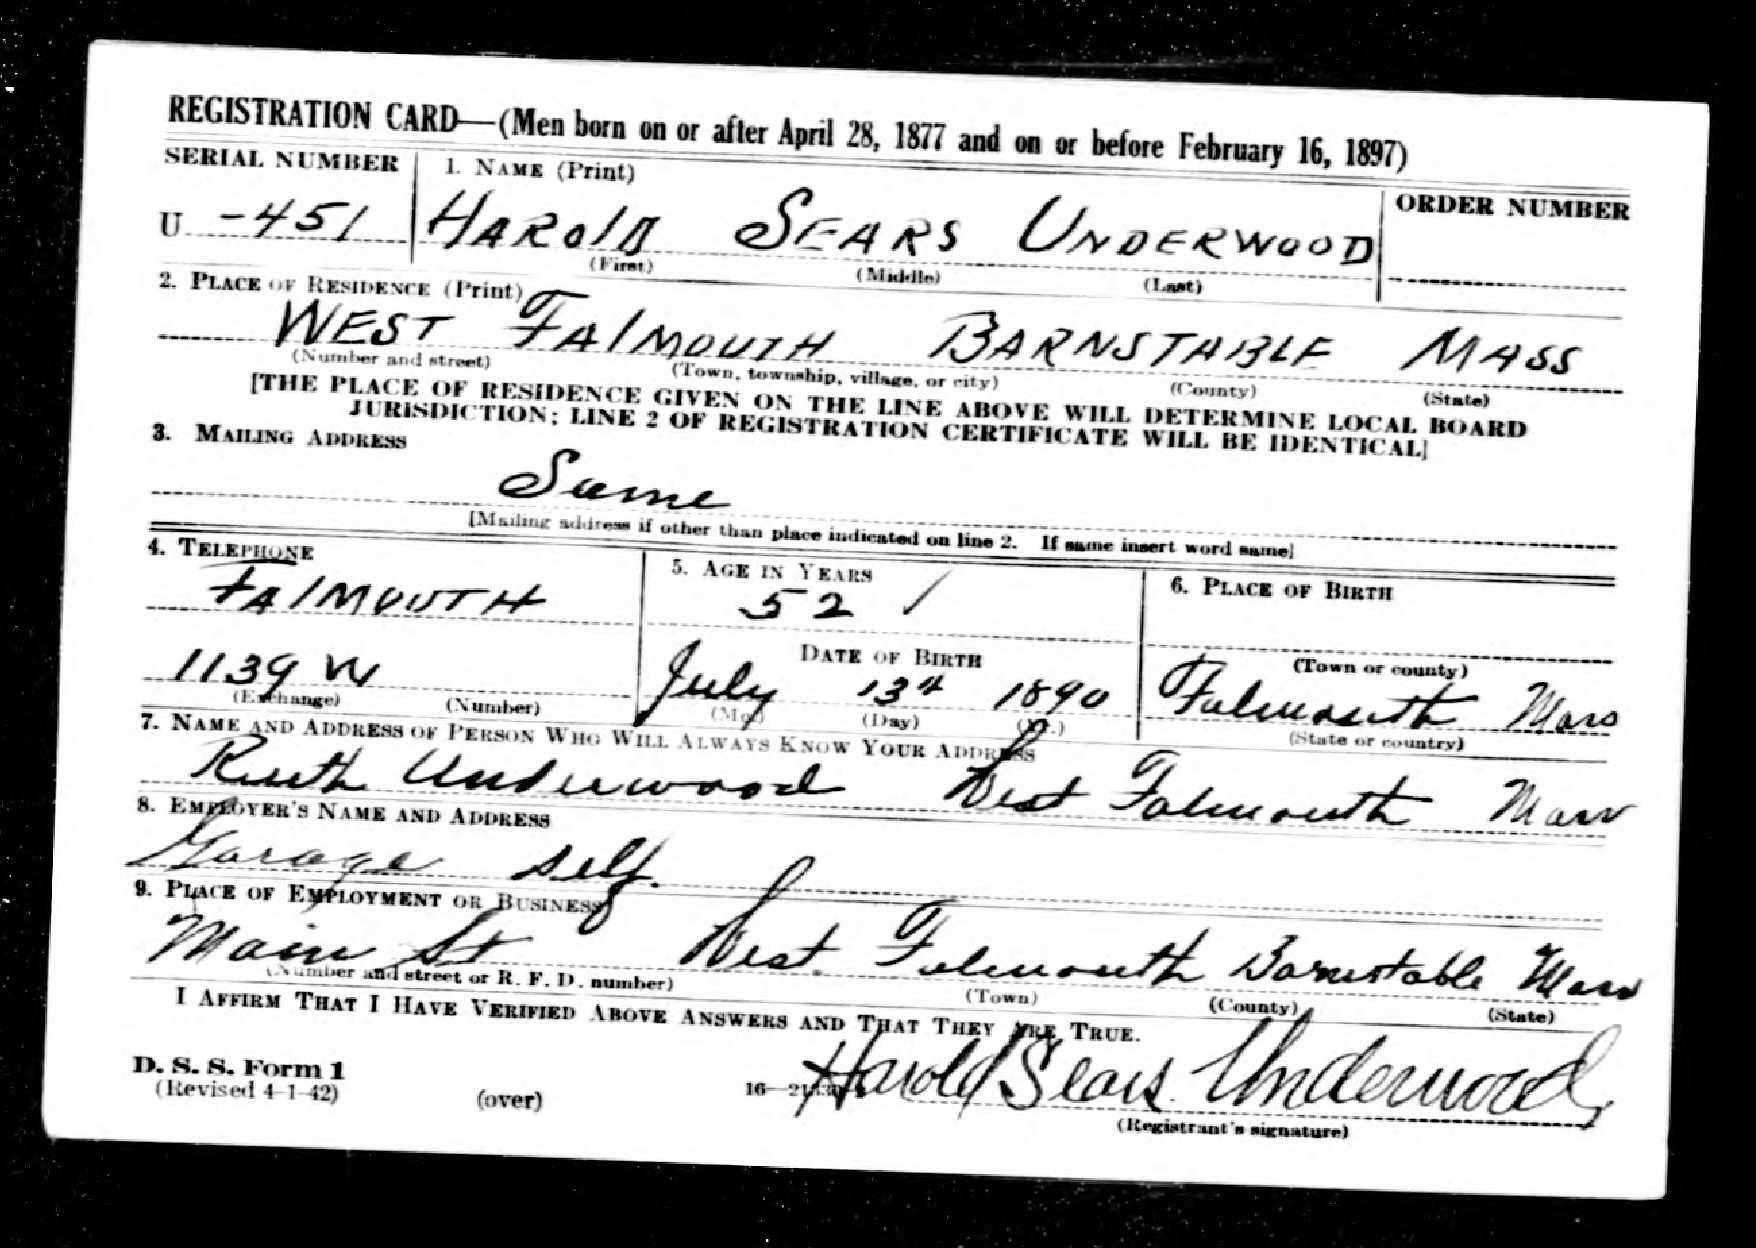 REGISTRATION CARD—(Men born on or after April 28, 1877 and on or before February 16, 1897)
SERIAL NUMBER 1. NAME (Print) ORDER NUMBER
U -451 HAROLD SEARS UNDERWOOD
(First) (Middle) (Last)
2. PLACE OF RESIDENCE (Print)
WEST FALMOUTH BARNSTABLE MASS
(Number and street) (Town, township, village, or city) (County) (State)
[THE PLACE OF RESIDENCE GIVEN ON THE LINE ABOVE WILL DETERMINE LOCAL BOARD
JURISDICTION; LINE 2 OF REGISTRATION CERTIFICATE WILL BE IDENTICAL]
3. MAILING ADDRESS
Same
[Mailing address if other than place indicated on line 2. If same insert word same]
4. TELEPHONE 5. AGE IN YEARS 6. PLACE OF BIRTH
FALMOUTH 52 /
DATE OF BIRTH (Town or county)
1139 W July 13th 1890 Falmouth Mass
(Exchange) (Number) (Mo.) (Day) (Yr.) (State or country)
7. NAME AND ADDRESS OF PERSON WHO WILL ALWAYS KNOW YOUR ADDRESS
Ruth Underwood West Falmouth Mass
8. EMPLOYER'S NAME AND ADDRESS
Garage self.
9. PLACE OF EMPLOYMENT OR BUSINESS
Main St West Falmouth Barnstable Mass
(Number and street or R. F. D. number) (Town) (County) (State)
I AFFIRM THAT I HAVE VERIFIED ABOVE ANSWERS AND THAT THEY ARE TRUE.
D. S. S. Form 1
(Revised 4-1-42) (over) 16— Harold Sears Underwood
(Registrant's signature)